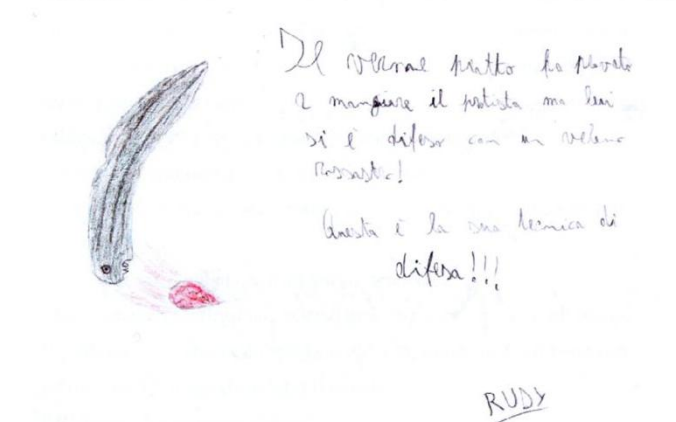 Il verme piatto ha provato
a mangiare il protista ma lui
si è difeso con un veleno
rossastro!
Questa è la sua tecnica di
difesa!!!
RUDY